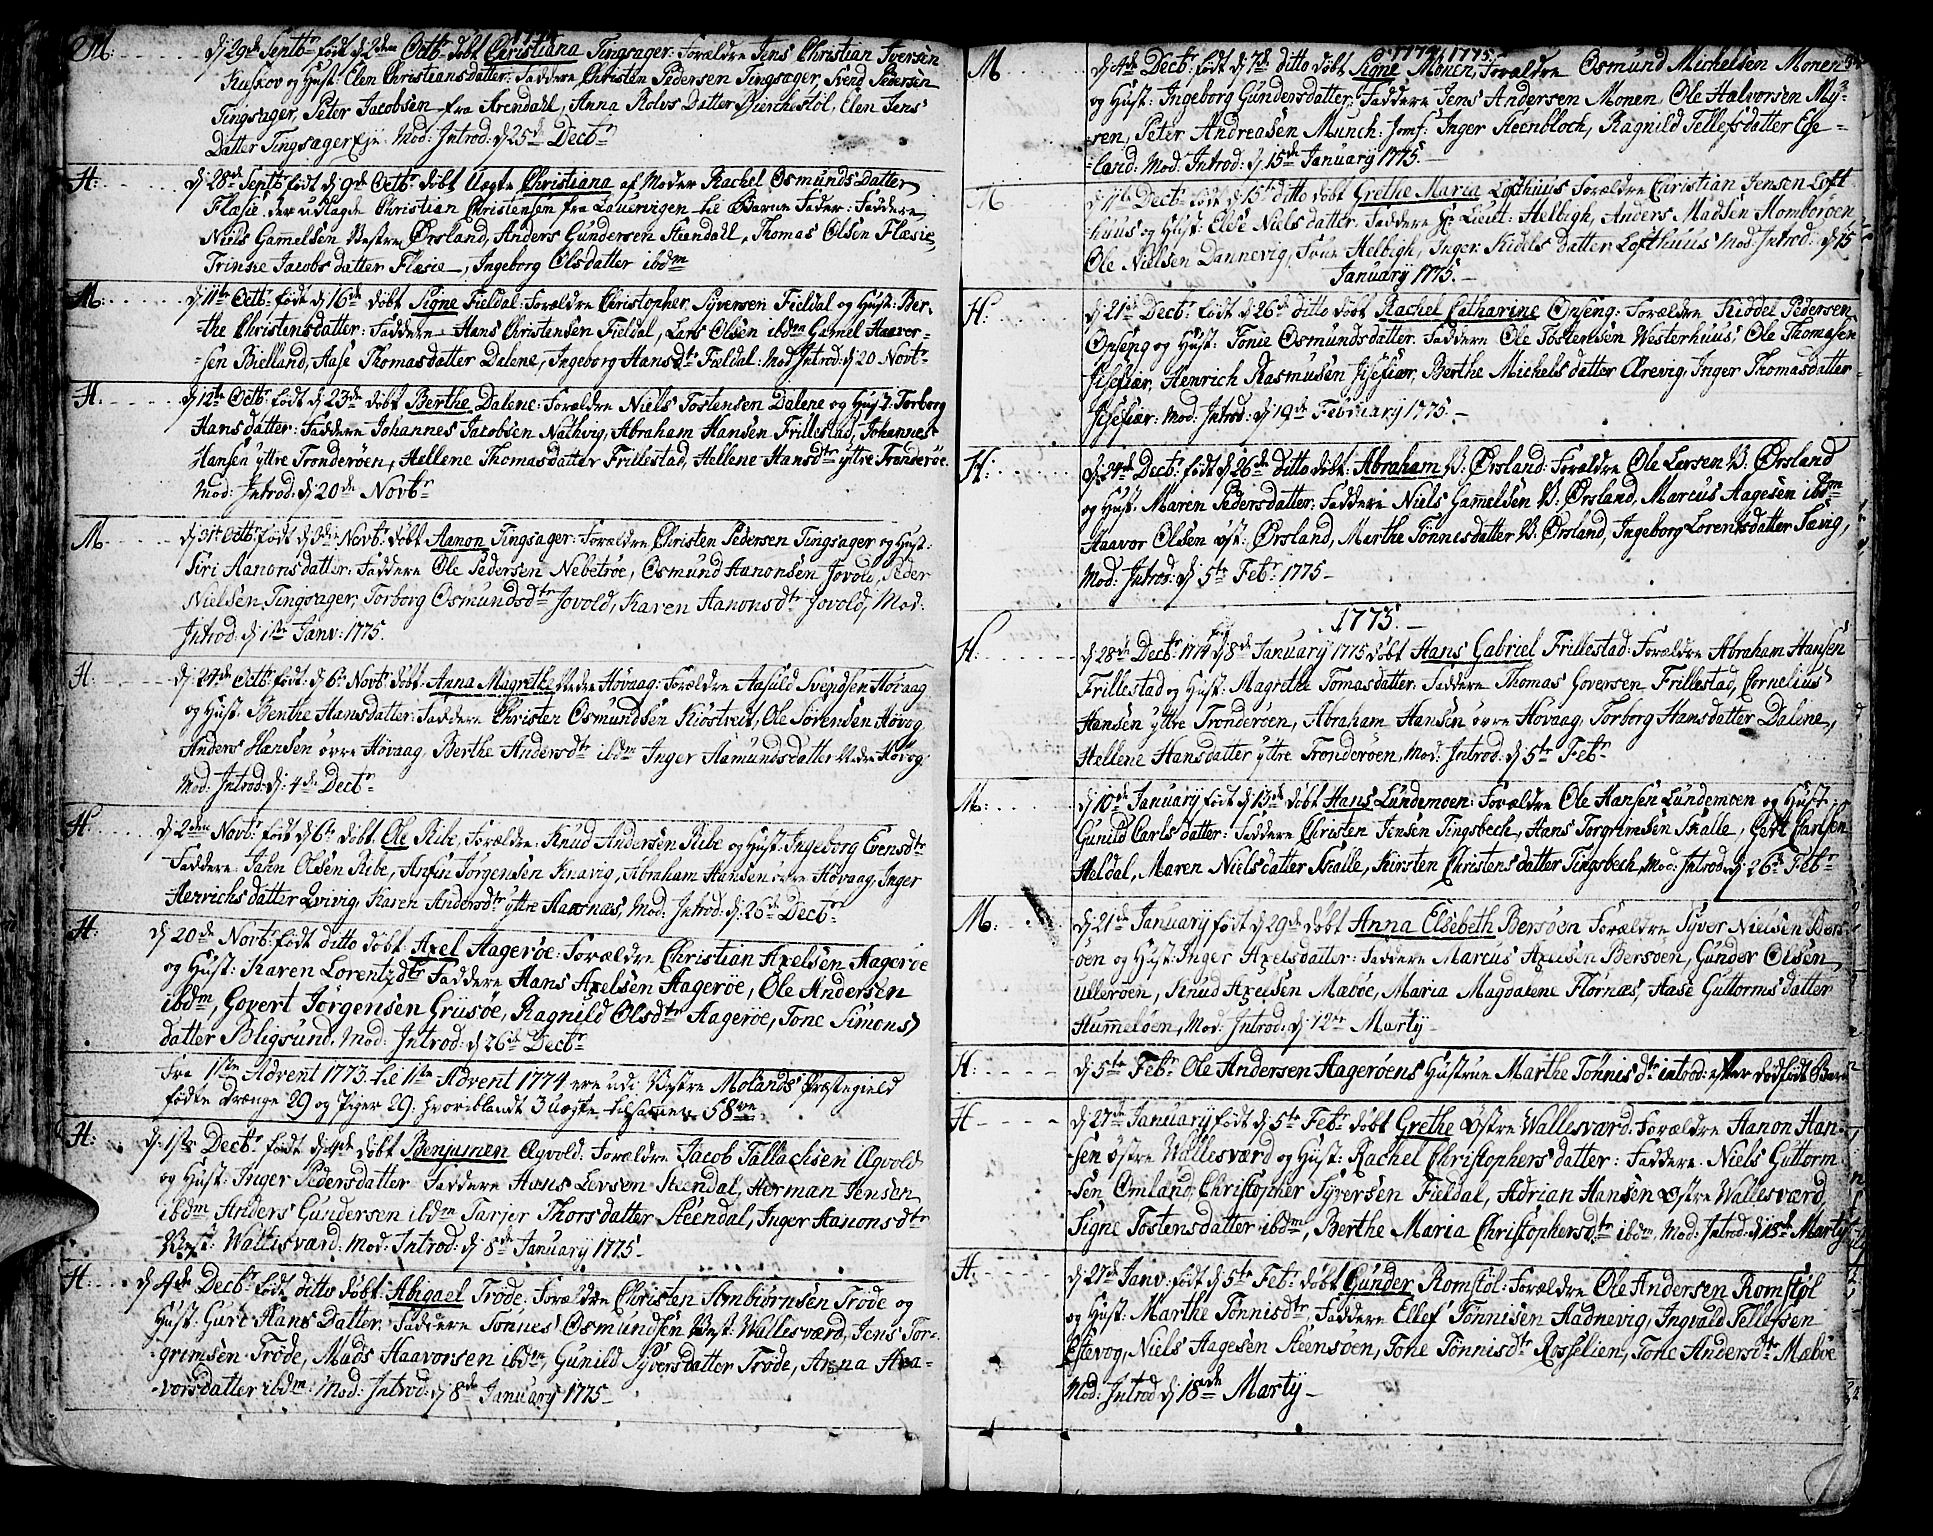 1774
M: d: 29de Septbr født d: 2den Octb: døbt Christiana Tingsager: Forældre Jens Christian Iversen
og Hust: Elen Christiansdatter: Faddere Christen Pedersen Tingsager, Svend Pedersen
Tingsager, Peter Jacobsen fra Arendall, Anna Rolvs Datter Birchestøl, Elen Jens
Datter Tingsager Eje Mod: Introd: d: 25de Decbr
H: d: 28de Septbr født d: 9de Octbr døbt Uægte Christiana af Moder Rachel Osmunds Datter
Flæsie der udlagde Christian Christensen fra Lauervigen til Barne Fader: Faddere
Niels Gamelsen Vestre Ørsland, Anders Gundersen Steendall, Thomas Olsen Flæsie,
Trinsie Jacobs datter Flæsie, Ingeborg Olsdatter ibdm
M: d: 11te Octbr født d: 16de døbt Signe Fieldal: Forældre Christopher Syversen Fieldal og Hust: Ber-
the Christensdatter: Faddere Hans Christensen Fieldal, Lars Olsen ibdm Gamel Haavor-
sen Bielland, Aase Thomasdatter Dalene, Ingeborg Hansdtr Fieldal: Mod: Introd: d: 20 Novbr
H: d: 12te Octbr født d: 23de døbt Berthe Dalene: Forældre Niels Tostensen Dalene og Hust: Torborg
Hansdatter: Faddere Johannes Jacobsen Nathvig, Abraham Hansen Frillestad, Johannes
Hansen yttre Tronderøen, Hellene Thomasdatter Frillestad, Hellene Hansdtr yttre Tronderøe.
Mod: Introd: d: 20de Novbr
M d: 31te Octbr født d: 3die Novbr: døbt Aanon Tingsager: Forældre Christen Pedersen Tingsager og Hust:
Siri Aanonsdatter: Faddere Ole Pedersen Nebetrøe, Osmund Aanonsen Jovold, Peder
Nielsen Tingsager, Torborg Osmundsdtr Jovold, Karen Aanonsdtr Jovold, Mod:
Introd: d: 1ste Janv: 1775.
H: d: 24de Octbr født: d: 6te Novbr døbt: Anna Magrethe Nedre Høvaag: Forældre Aasuld Svendsen Høvaag
og Hust: Berthe Hansdatter: Faddere Christen Osmundsen Kiøstvedt, Ole Sørensen Høvog
Anders Hansen øvre Høvaag, Berthe Andersdtr ibdm Inger Hamundsdatter Nedre Høvog
Mod: Introd: d: 4de Decbr
H: d: 2den Novbr: født d: 6te døbt: Ole Ribe, Forældre: Knud Andersen Ribe og Hust: Ingeborg Evensdtr
Faddere: Jahn Olsen Ribe, Anfin Jørgensen Knavig, Abraham Hansen øvre Høvaag, Inger
Henrichsdatter Qvivig, Karen Andersdtr yttre Aasnæs, Mod: Introd: d: 26de Decbr
H: d: 20de Novbr født ditto døbt: Axel Aagerøe: Forældre Christian Axelsen Aagerøe
og Hust: Karen Lorentzdtr Faddere Hans Axelsen Aagerøe, Ole Andersen
ibdm, Govert Jørgensen Grusøe, Ragnild Olsdtr Aagerøe, Tone Simons
datter Bligsund, Mod: Introd: d: 26de Decbr
Fra 1ste Advent 1773. til 1ste Advent 1774 ere udi Vestre Molands Præstegield
fødte Drænge 29 og Piger 29: hvoriblandt 3 uægte tilsamen 58ve.
H: d: 1ste Decbr født d: 4de døbt Benjamen Øgvold: Forældre Jacob Tallachsen Øgvold
og Hust: Inger Pedersdatter Faddere Hans Levsen Steendal, Herman Jensen
ibdm Anders Gundersen ibdm Tarjer Thorsdatter Steendal, Inger Aanonsdtr
Vest: Wallesværd, Mod: Introd: d: 8de January 1775
H: d: 4de Decbr født ditto døbt: Abigael Trøde: Forældre Christen Ambiørnsen Trøde og
Hust: Guri Hans Datter: Faddere Tønnes Osmundsen Vest: Wallesværd, Jens Tor-
grimsen Trøde, Mads Haavorsen ibdm, Gunild Syversdatter Trøde, Anna Haa-
vorsdatter ibdm: Mod: Introd: d: 8de January 1775
1774/1775
M d: 4de Decbr: født d: 7de ditto døbt Signe Monen, Forældre Osmund Michelsen Monen
og Hust: Ingeborg Gundersdatter: Faddere Jens Andersen Monen, Ole Halvorsen My-
ren, Peter Andreasen Munch: Jomf: Inger Steenbloch, Ragnild Tellefsdatter Ege-
land: Mod: Introd: d: 15de January 1775.
M d: 11te Decbr født d: 15te ditto døbt Grethe Maria Lofthuus Forældre Christian Jensen Loft
huus og Hust: Else Nielsdatter: Faddere Hr: Lieut: Helbigh, Anders Madsen Homborøen
Ole Nielsen Dannevig, Helbigh, Inger Kidels datter Lofthuus Mod: Introd: d: 15
January 1775.
H: d: 21de Decbr født d: 26de ditto døbt Rachel Catharine Opseng: Forældre Kiddel Pedersen
Opseng og Hust: Tonie Osmundsdatter. Faddere Ole Tostensen Westerhuus, Ole Thomasen
Jisefiær, Henrich Rasmusen Jisefiær, Berthe Michelsdatter Ørevig, Inger Thomasdatter
Jisefiær: Mod: Introd: d: 19de February 1775.
H: d: 24de Decbr: født d: 26de ditto døbt: Abraham V: Ørsland: Forældre Ole Larsen V: Ørsland
og Hust: Maren Pedersdatter: Faddere Niels Gamelsen V: Ørsland, Marcus Aagesen ibdm
Haavor Olsen øst: Ørsland, Marthe Tønnesdatter V: Ørsland, Ingeborg Lorentsdatter Sævig,
Mod: Introd: d: 5te Febr 1775
1775.
H: d: 28de Decbr 1774 født d: 8de January 1775 døbt Hans Gabriel Frillestad: Forældre Abraham Hansen
Frillestad og Hust: Magrethe Tomasdatter: Faddere Thomas Goversen Frillestad, Cornelius
Hansen yttre Tronderøen, Abraham Hansen øvre Høvaag, Torborg Hansdatter Dalene,
Hellene Hansdatter yttre Tronderøen, Mod: Introd: d: 5te Febr
M: d: 10de January født d: 13de døbt Hans Lundemoen: Forældre Ole Hansen Lundemoen og Hust:
Gunild Carls datter: Faddere Christen Jensen Tingsbech, Hans Torgrimsen Skalle, Gert Carlsen
Heldal, Maren Nielsdatter Skalle, Kirsten Christensdatter Tingsbech, Mod: Introd: d: 26de Febr
M: d: 21de January født d: 29de døbt Anna Elsebeth Bersøen Forældre Syver Nielsen Bers-
øen og Hust: Inger Axelsdatter: Faddere Marcus Axelsen Bersøen, Gunder Olsen
Ullerøen, Knud Axelsen Mæbøe, Maria Magdalene Flørnæs, Aase Guttorms datter
Hummeløen, Mod: Introd: d: 12te Marty
H: d: 5te Febr Ole Andersen Aagerøens Hustrue Marthe Tønnisdtr introd: efter dødfødt Barn
H d: 27de January født d: 5te Febr døbt Grethe Østre Wallesværd: Forældre Aanon Han-
sen østre Wallesværd og Hust: Rachel Christophers datter: Faddere. Niels Guttorm
sen Omland, Christopher Syversen Fieldal, Adrian Hansen østre Wallesværd,
Signe Tostensdatter ibdm, Berthe Maria Christophersdtr ibdm, Mod: Introd: d: 15de Marty
H: d: 27de Janv: født d: 5te Feb: døbt Gunder Romstøl: Forældre Ole Andersen Romstøl
og Hust: Marthe Tønnisdtr, Faddere Ellef Tønnisen Aadnevig, Ingvald Tellefsen
Estevog, Niels Aagesen Steensøen, Tone Tønnisdtr Rosselien, Tone Andersdtr Mæbøe
Mod: Introd: d: 18de Marty